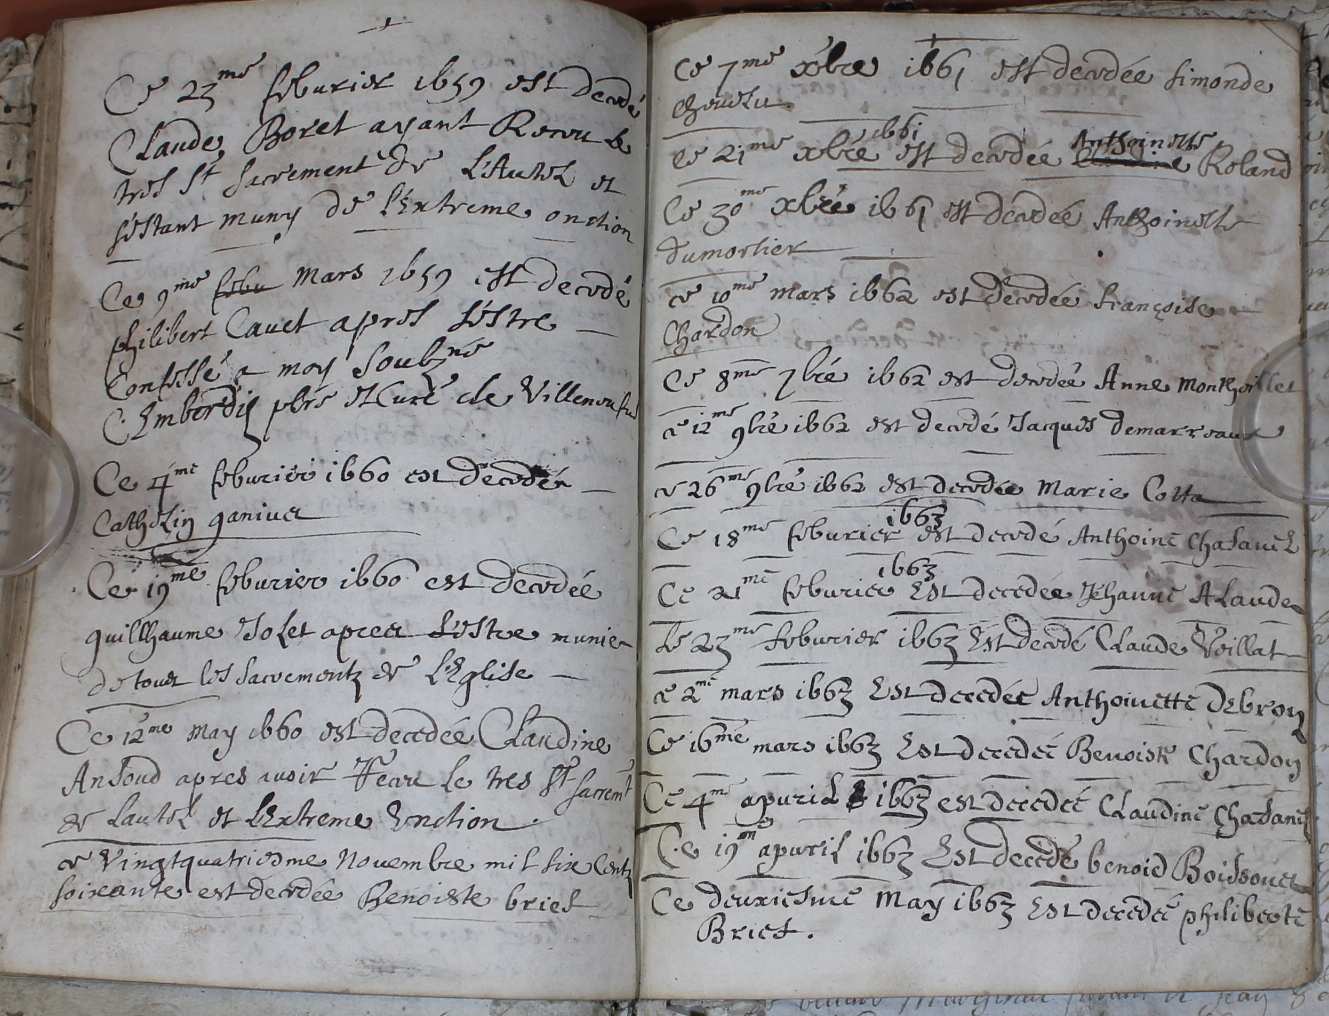 Ce 23me feburier 1659 est decedé
Claude Boret ayant Receu le
tres st sacrement de L'Autel et
s'estant muny de l'Extreme onction
Ce 9me febu mars 1659 est decedé
philibert Cauet apres s'estre
Confessé a moy Soubzné
C. Emberdis pbre et Curé de Villeneufue
Ce 4me feburier 1660 est decedé
Cathelin ganiuet
Ce 19me feburier 1660 est decedée
quillhaume Jolet apres L'estre munie
de tous les sacrementz de L'Eglise
Ce 12me may 1660 est decedée Claudine
Ansoud apres auoir Receu le tres st sacremt
de Lautel et L'Extreme Onction.
ce Vingtquatriesme Novembre mil six Centz
soixante est decedée Benoiste brief
Ce 7me xbre 1661 est decedée simonde
cheuelu
1661
ce 21me xbre est decedée Anthoinette Roland
Ce 30me xbre 1661 est decedée Anthoinette
dumortier
ce 10me mars 1662 est decedée françoise
Chardon
Ce 8me 7bre 1662 est decedée Anne monthoillet
ce 12me 9bre 1662 est decedé Jacques demarreaux
ce 26me 9bre 1662 est decedée Marie Cotta
1663
Ce 18me feburier est decedé Anthoine chasanel
1663
Ce 21me feburier Est decedée Jehanne ALaude
Le 23me feburier 1663 Est decedé CLaude Veillat
ce 2me mars 1663 Est decedée Anthoinette Debron
Ce 16me mars 1663 Est decedée Benoiste Chardon
Ce 4me apuril 1663 est decedée CLaudine chasanel
Ce 19me apuril 1663 Est decedé benoid Boissonet
Ce deuxiesme May 1663 Est decedée philiberte
Brief.